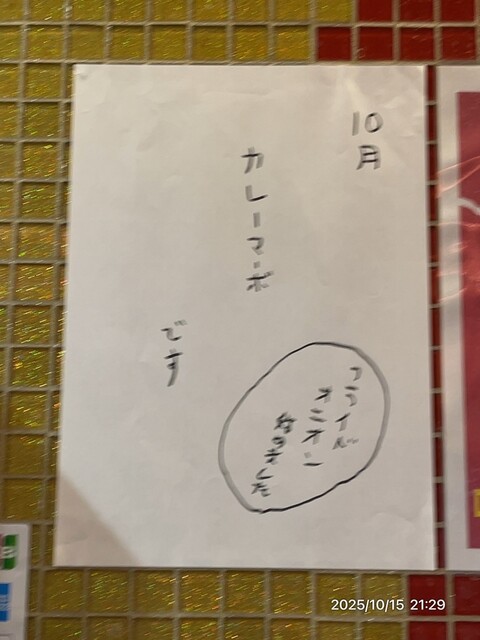 10月
カレーマーボ
です
フライド
オニオン
始めました
2025/10/15 21:29